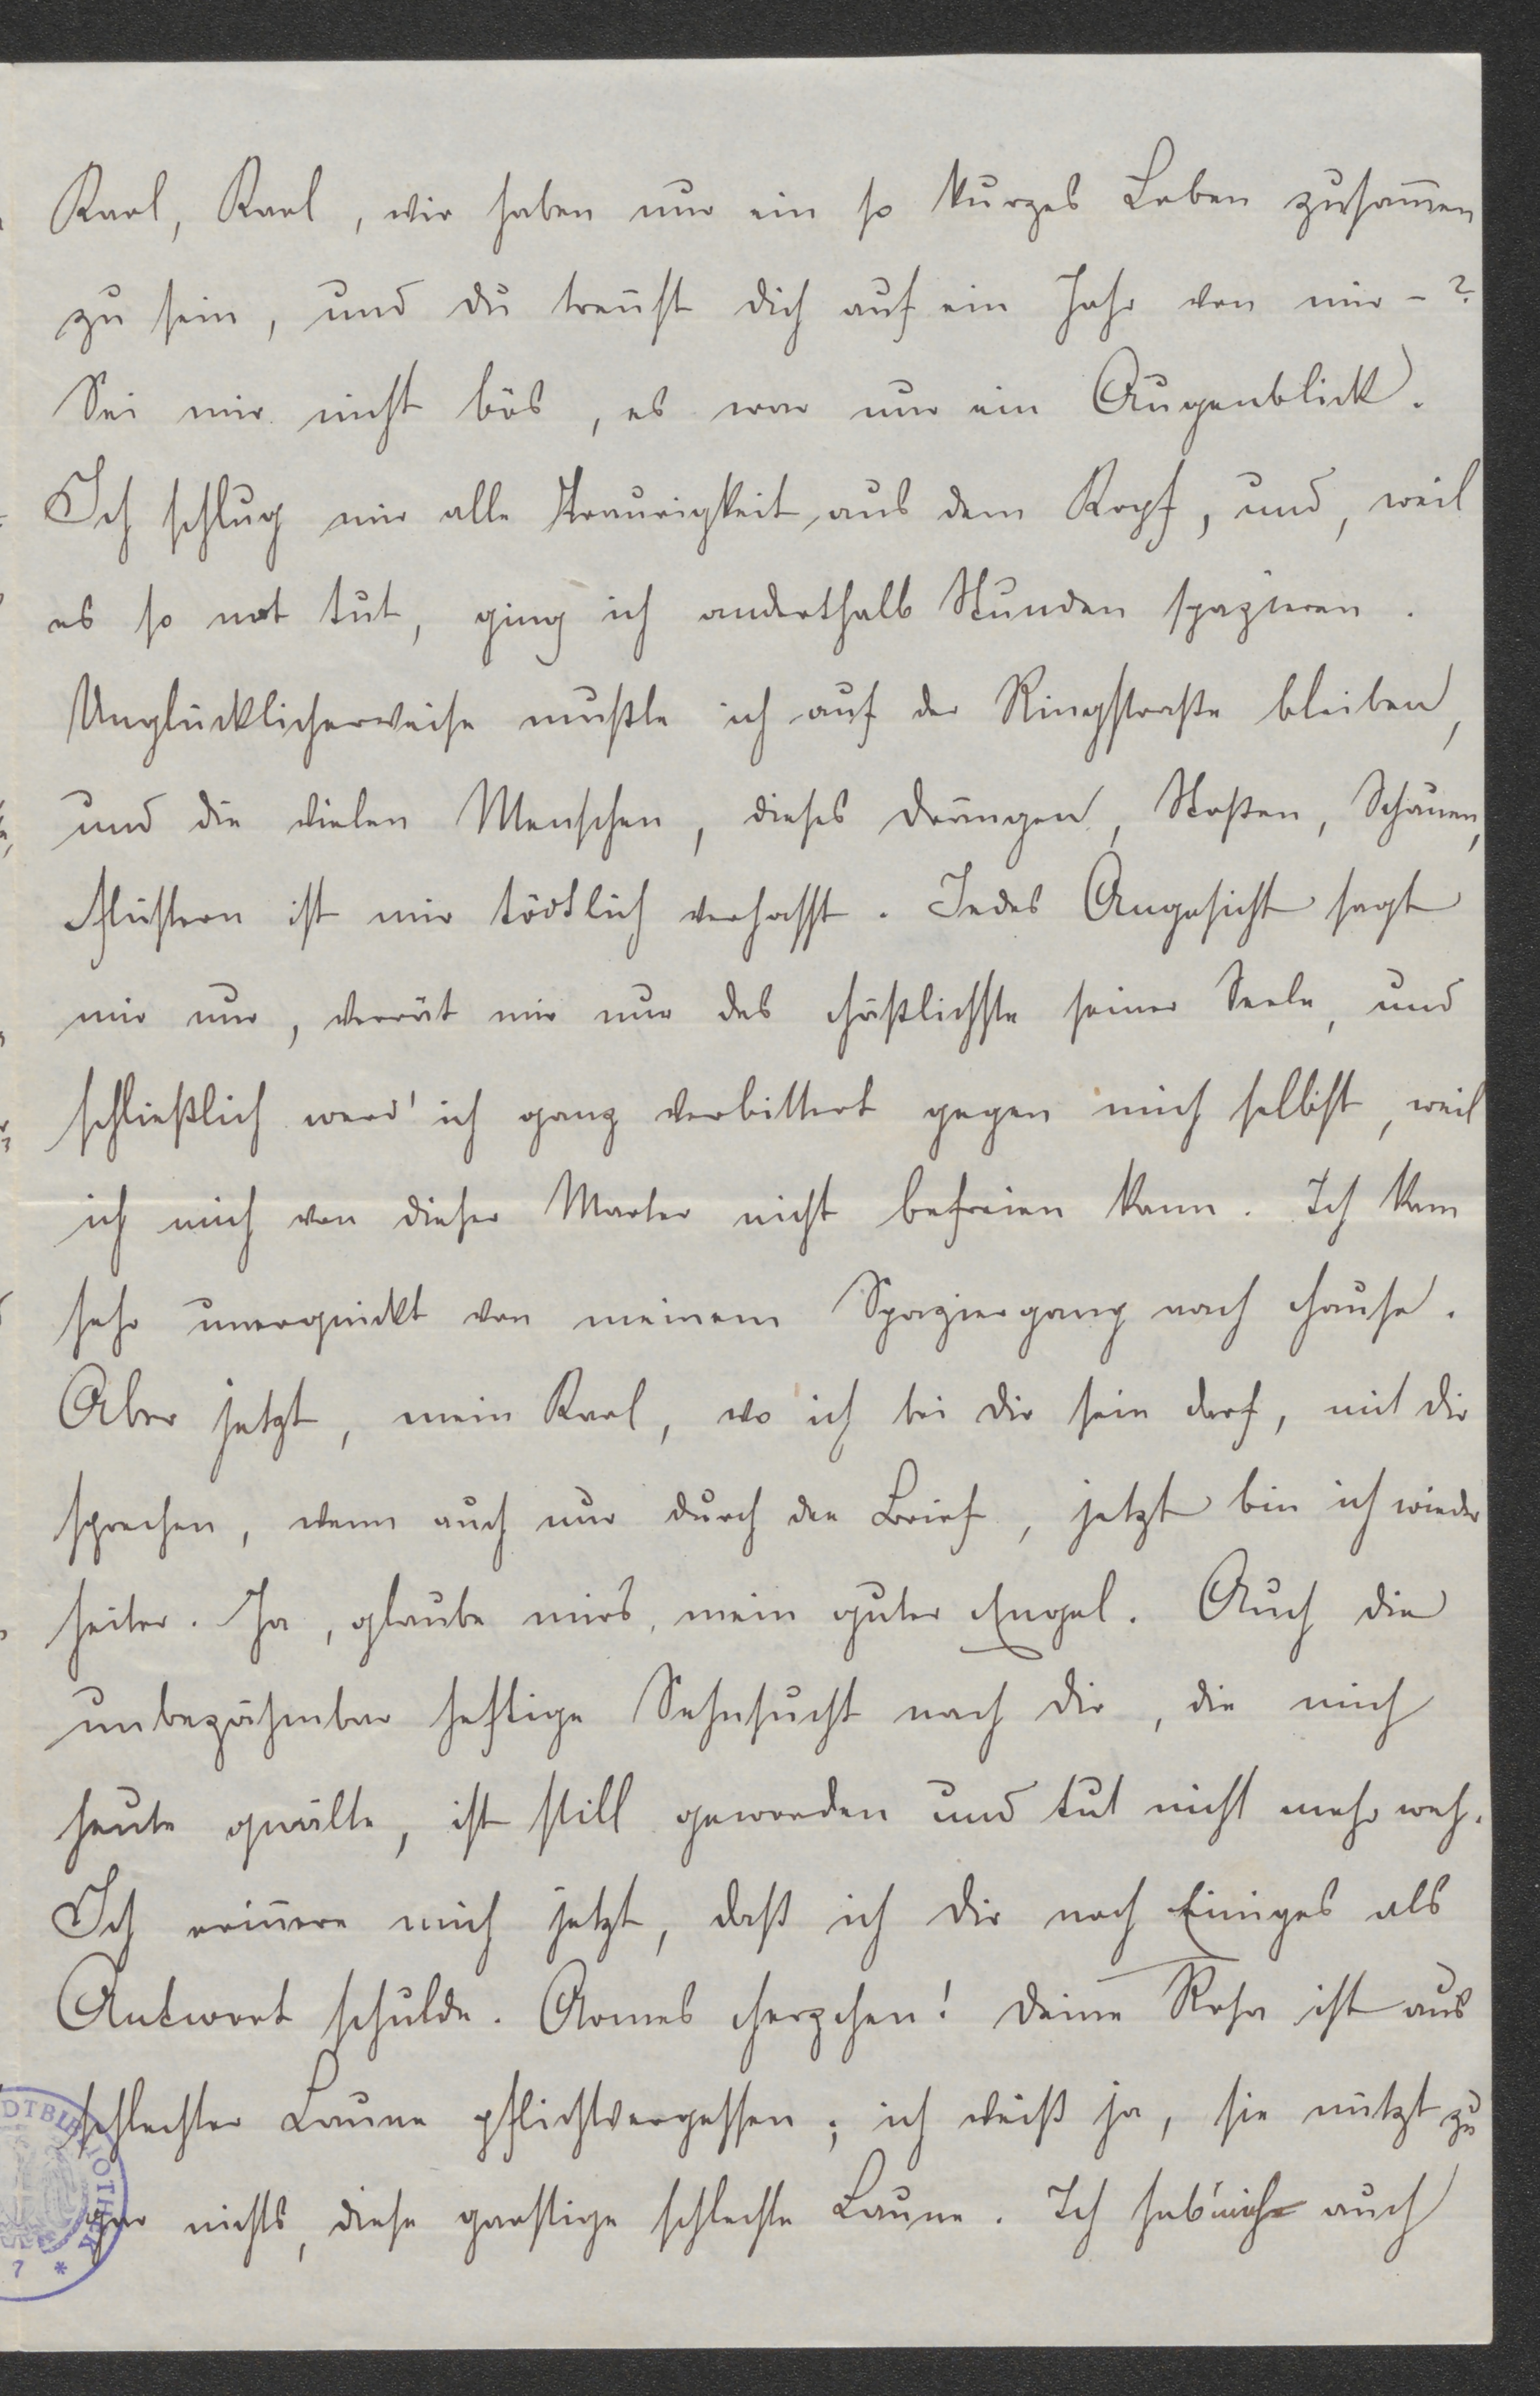 Karl, Karl, wir haben nur ein so kurzes Leben zusam̄en
zu sein, und du tren̄st dich auf ein Jahr von mir - ?
Sei mir nicht bös, es war nur ein Augenblick.
Ich schlug mir alle Traurigkeit aus dem Kopf, und, weil
es so not tut, ging ich anderthalb Stunden spazieren.
Unglücklicherweise mußte ich auf der Ringstraße bleiben,
und die vielen Menschen, dieses Drängen, Stoßen, Schauen,
Flüstern ist mir tödtlich verhasst. Jedes Angesicht sagt
mir nur, verrät mir nur das Häßlichste seiner Seele, und
schließlich werd' ich ganz verbittert gegen mich selbst, weil
ich mich von dieser Marter nicht befreien kann. Ich kam
sehr unerquickt von meinem Spaziergang nach Hause.
Aber jetzt, mein Karl, wo ich bei dir sein darf, mit dir
sprechen, wenn auch nur durch den Brief, jetzt bin ich wieder
heiter. Ja, glaube mirs, mein guter Engel. Auch die
unbezähmbar heftige Sehnsucht nach dir, die mich
heute quälte, ist still geworden und tut nicht mehr weh.
Ich erin̄ere mich jetzt, daß ich dir noch Einiges als
Antwort schulde. Armes Herzchen! Deine Rosa ist aus
schlechter Laune pflichtvergessen; ich weiß ja, sie nützt zu
gar nichts, diese garstige schlechte Laune. Ich hab' mich auch
DTBIBLIOTHEK
7 *